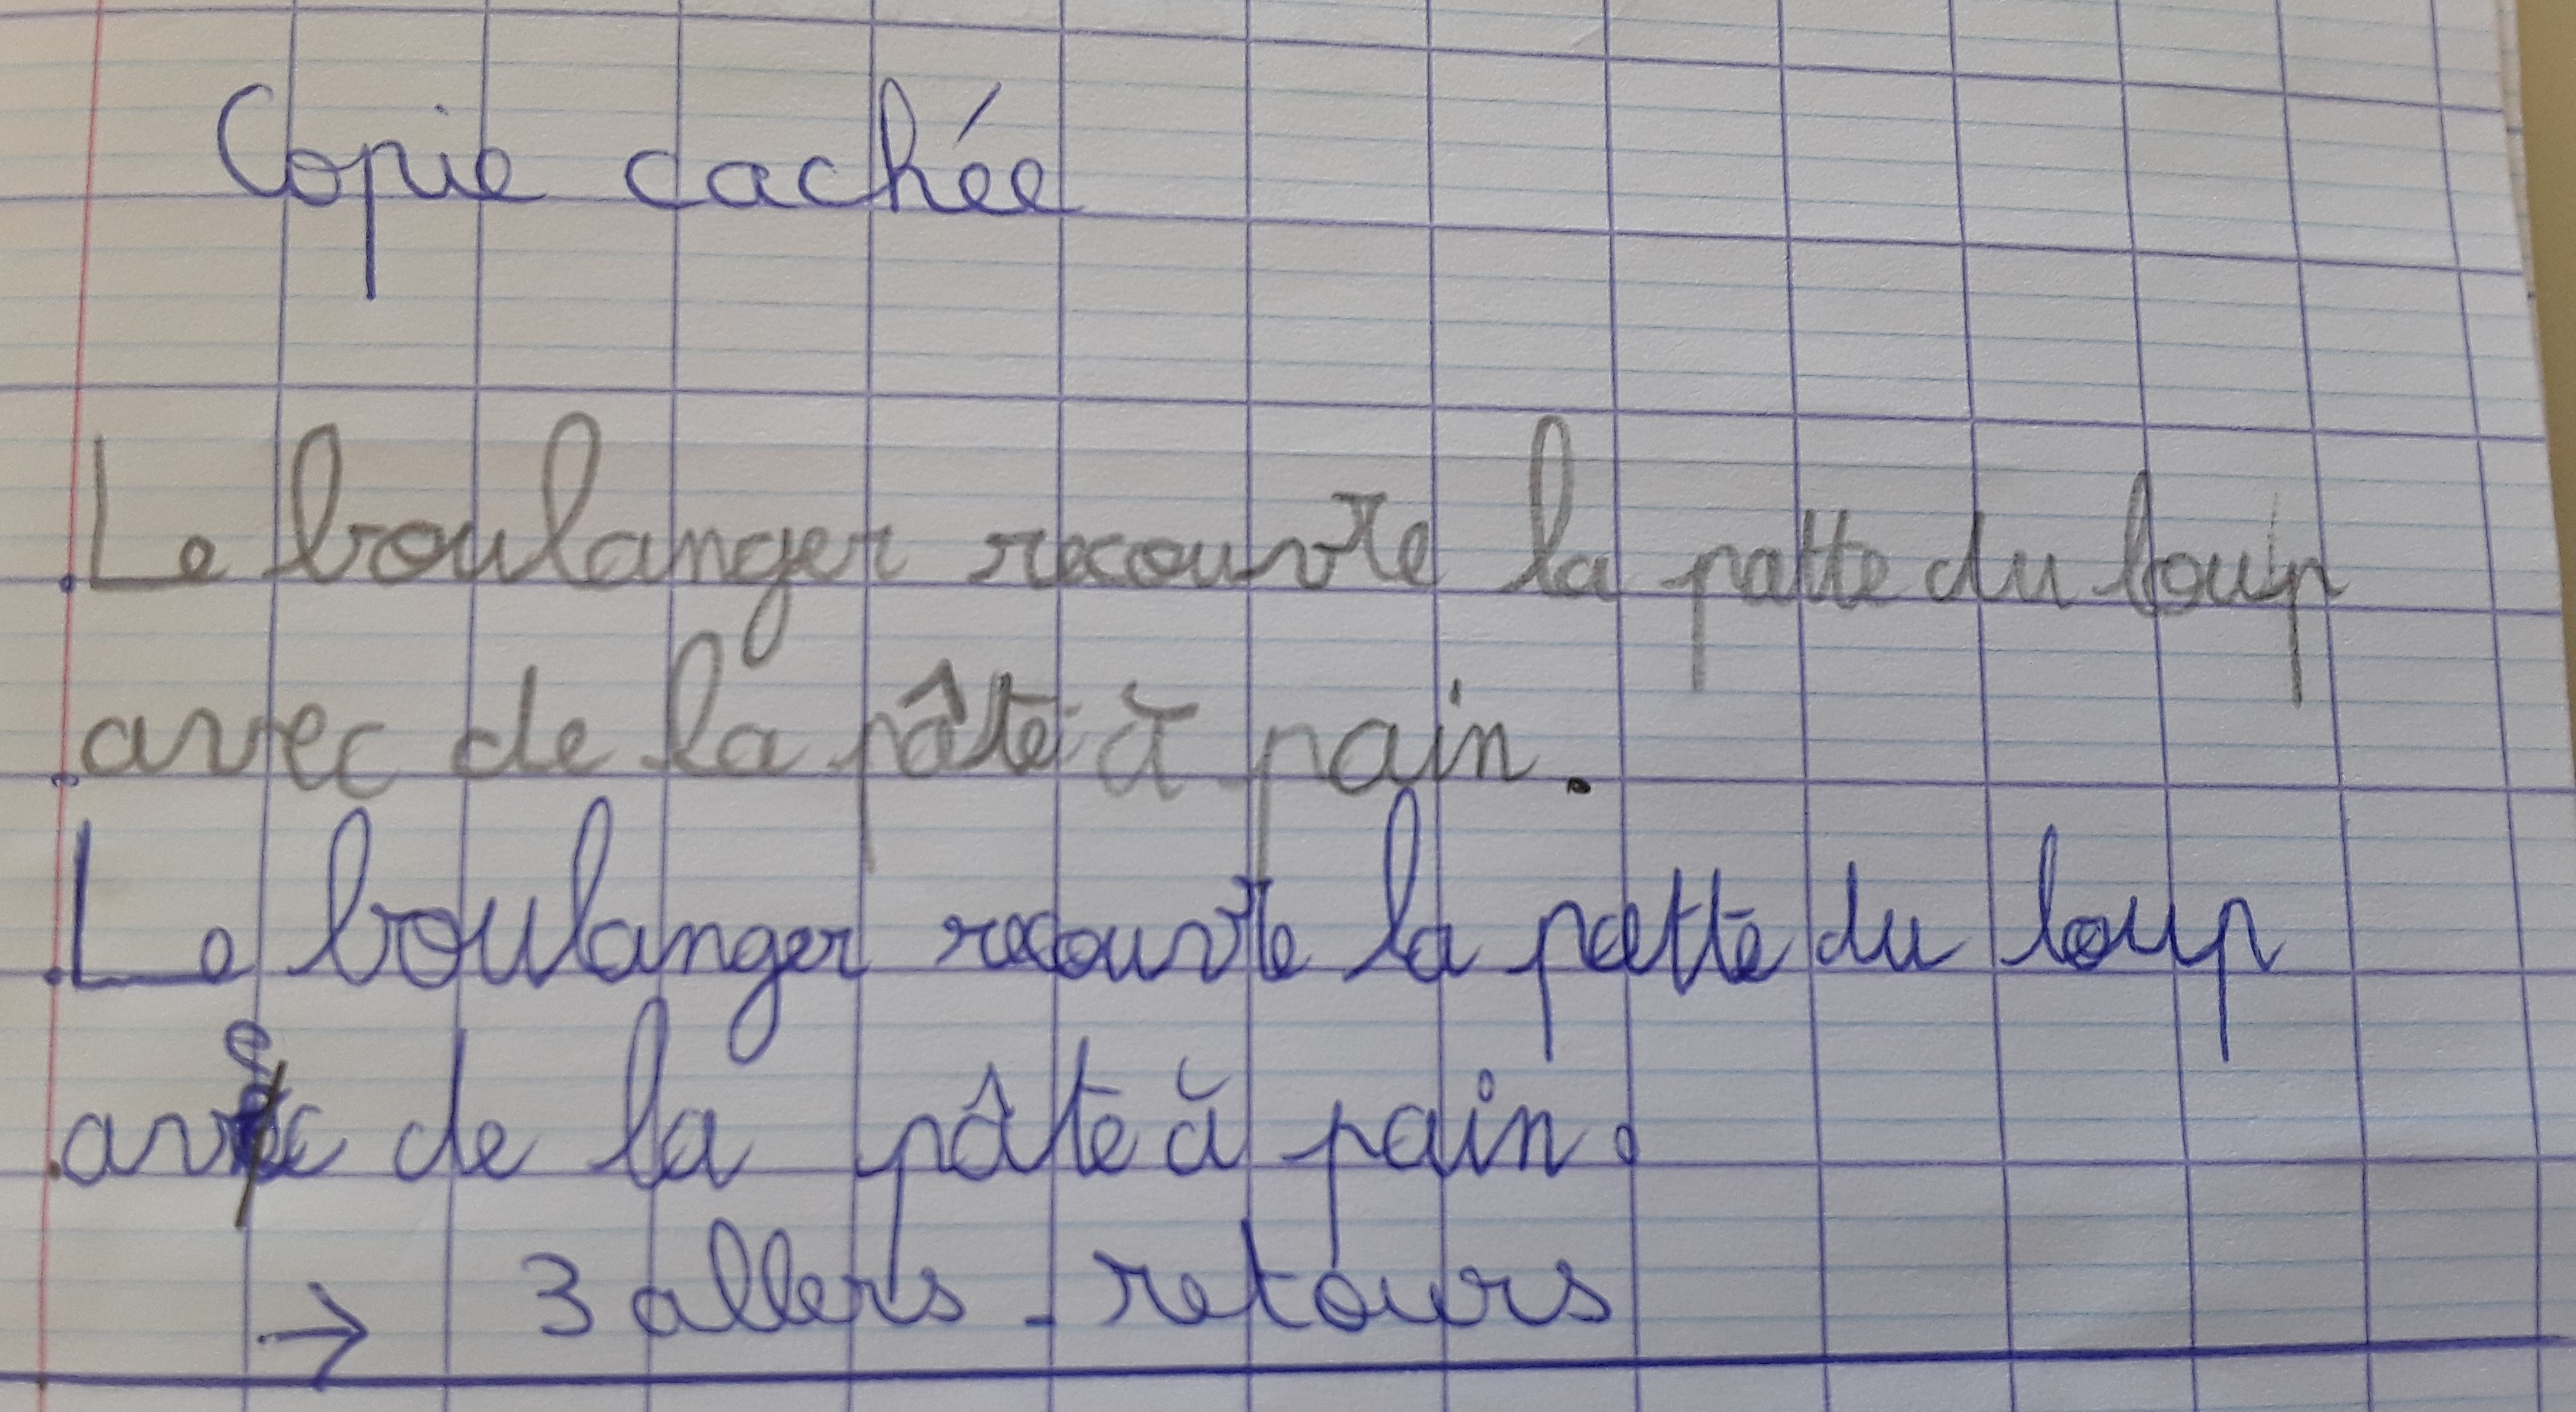 Copie cachée
Le boulanger recouvre la patte du loup
avec de la pâte à pain.
Le boulanger recouvre la patte du loup
avec de la pâte à pain.
→ 3 allers-retours